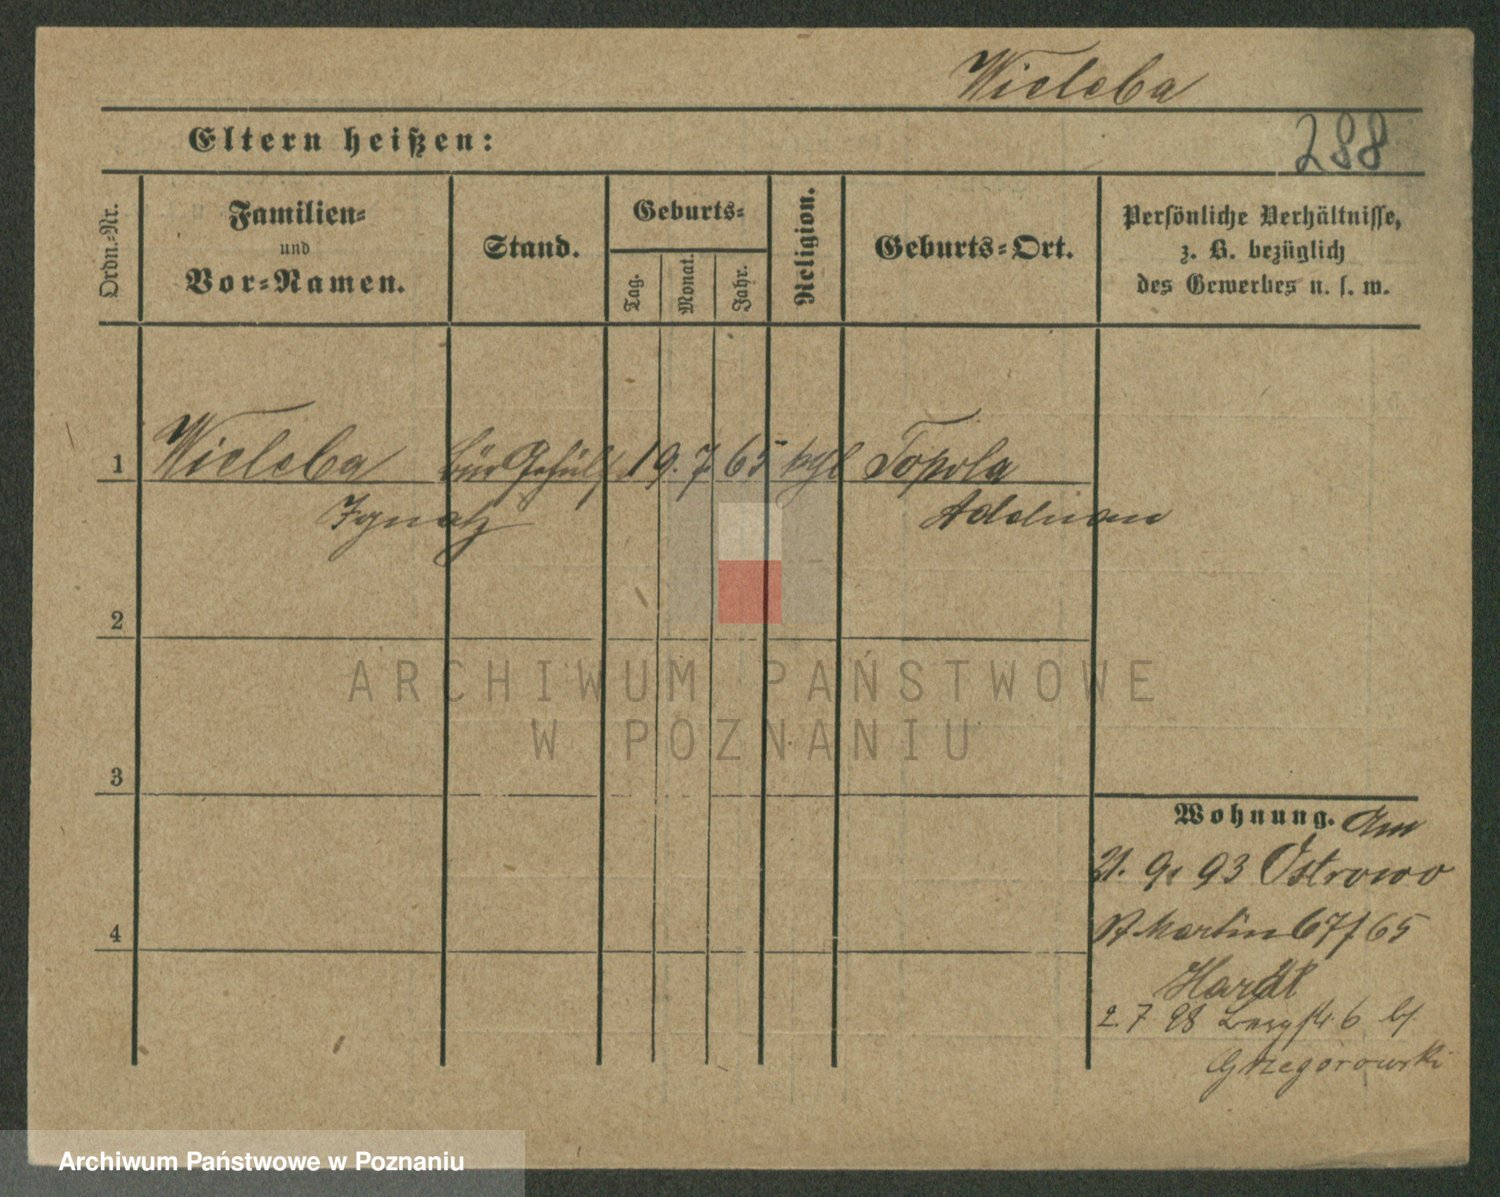 Wieleba
Eltern heißen:
288
Ordn.-Nr.
Familien-
und
Vor-Namen.
Stand.
Geburts-
Tag.
Monat.
Jahr.
Religion.
Geburts-Ort.
Persönliche Verhältnisse,
z. B. bezüglich
des Gewerbes u. s. w.
1 Wieleba Bür Gehülf 19. 7. 65 kgl Topola
Ignatz Adelnau
2
ARCHIWUM PAŃSTWOWE
W POZNANIU
3
Wohnung. Am
21. 9. 93 Ostrowo
St Martin 67 / 65
Hardt
2. 7 98 Bergstr. 6 bf
Grzegorowski
4
Archiwum Państwowe w Poznaniu